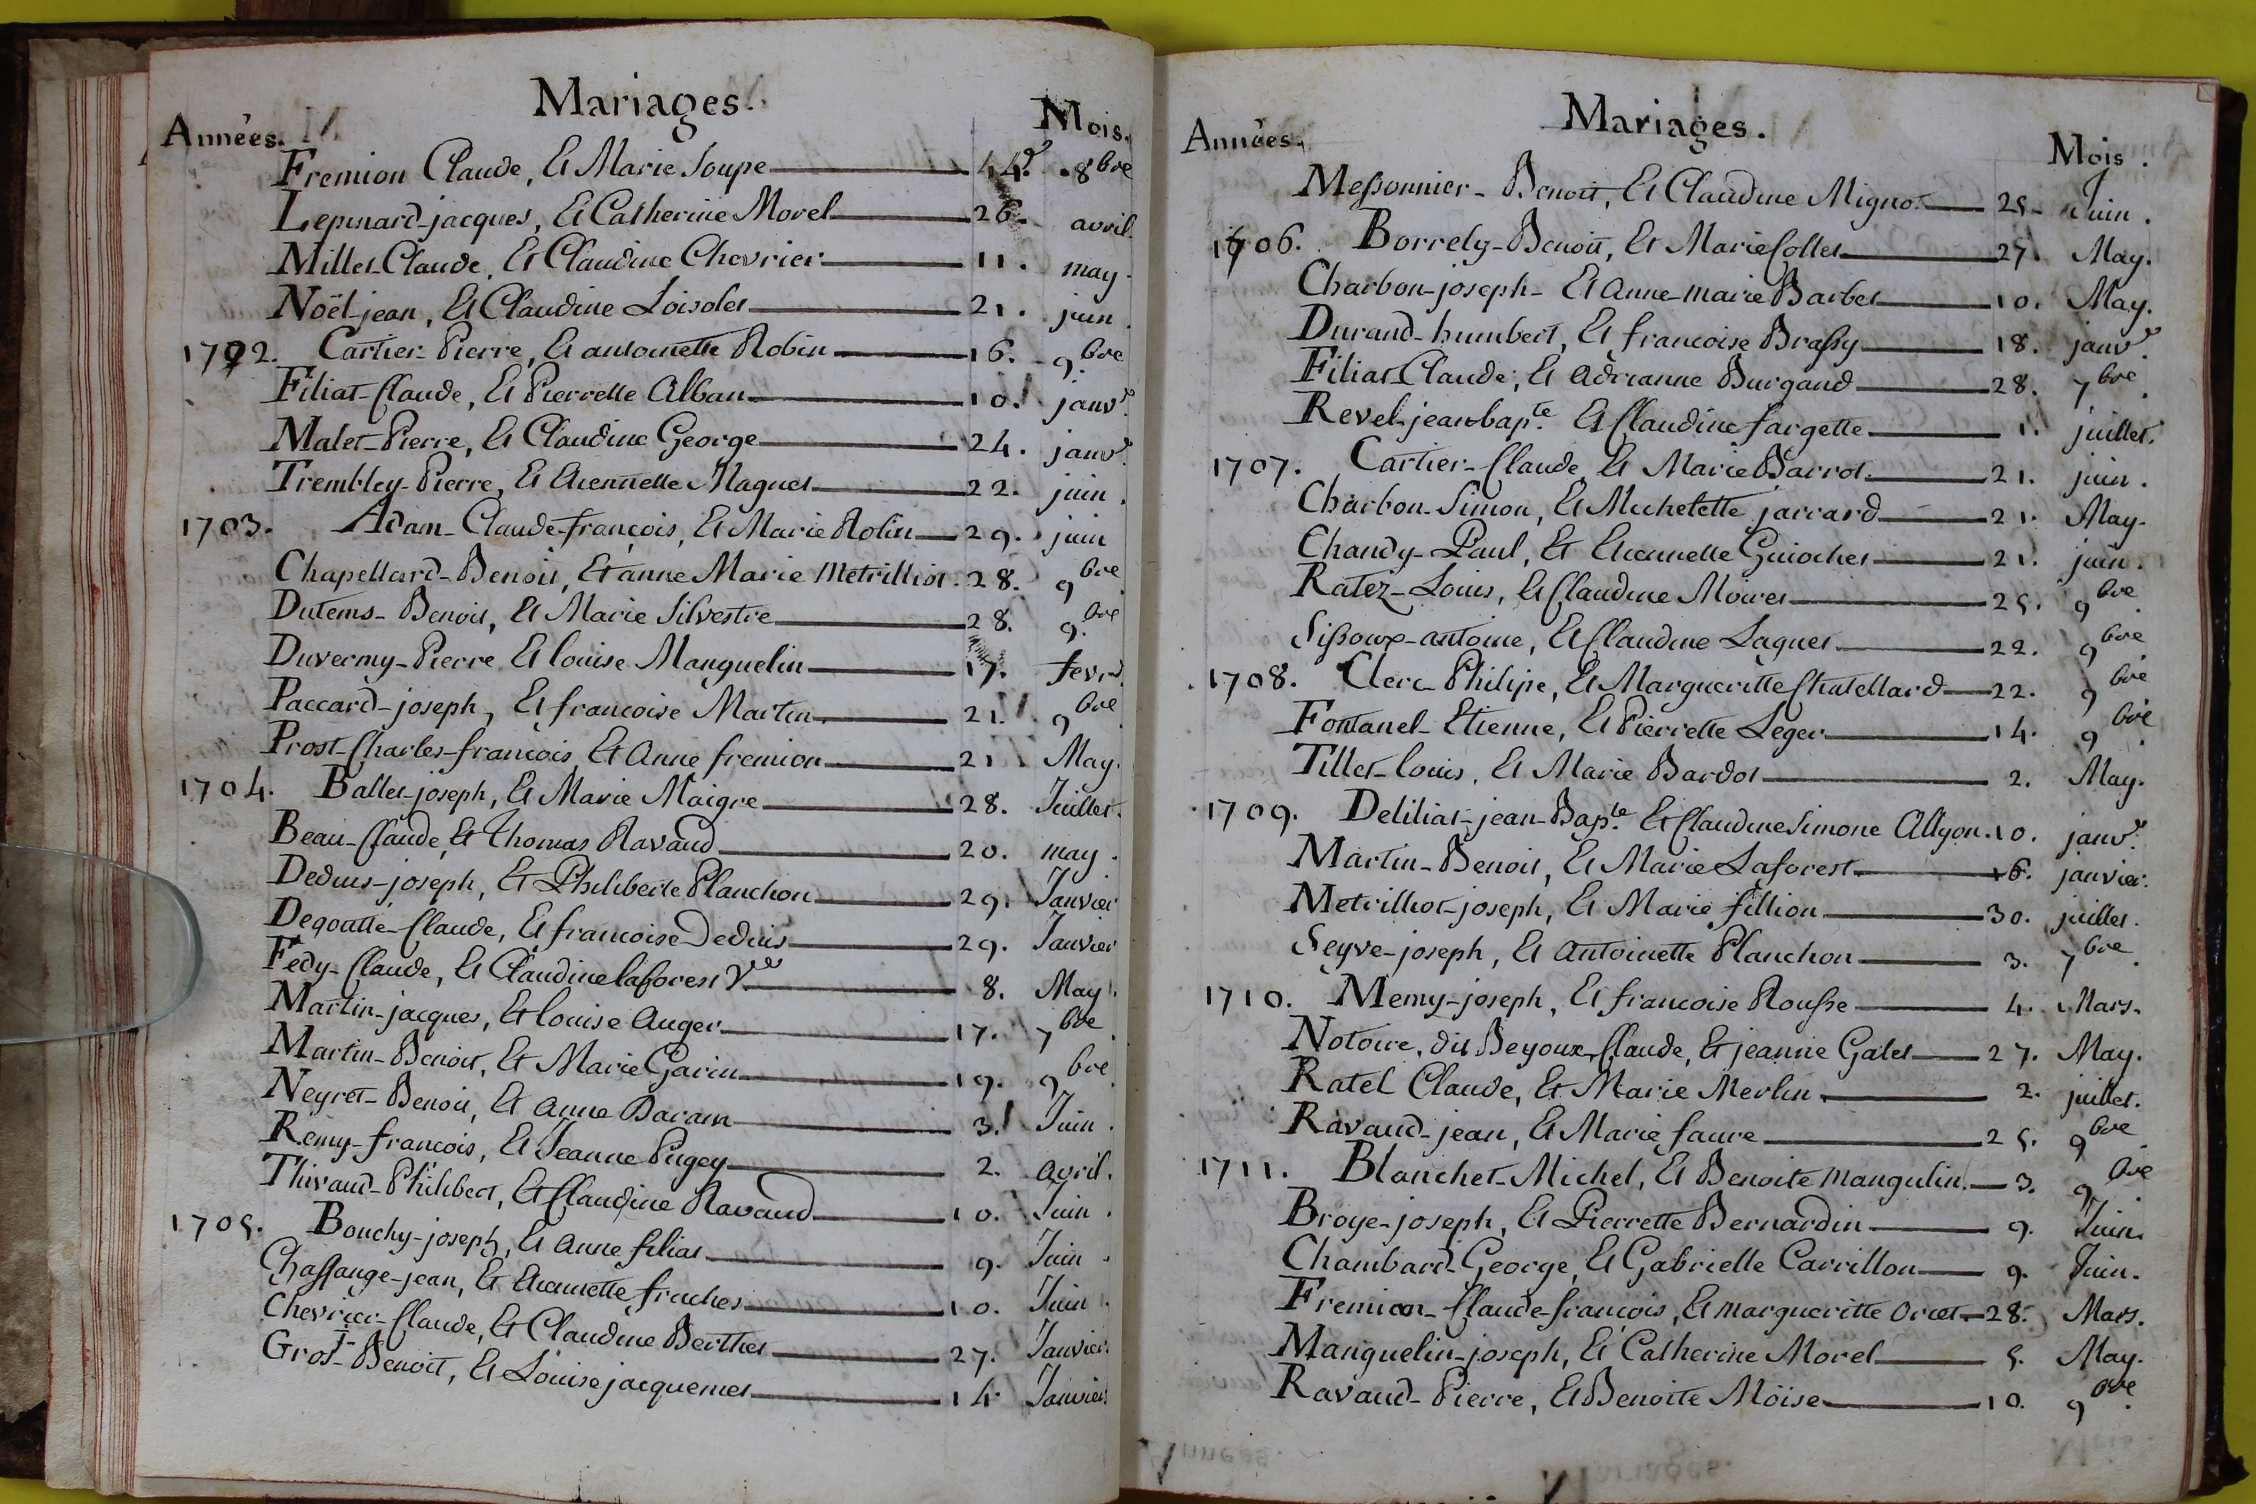 Mariages.
Années. Mois.
Fremion Claude, Et Marie Soupe 8bre
Lepinard-jacques, Et Catherine Morel 26. avril.
Millet-Claude, Et Claudine Chevrier 11. may.
Noël-jean, Et Claudine Loisolet 21. juin.
1702. Cartier-Pierre, Et antoinette Robin 16. 9bre
Filiat-Claude, Et Pierrette Alban 10. janvr.
Malet-Pierre, Et Claudine George 24. janvr.
Trembley-Pierre, Et Etiennette Maguet 22. juin.
1703. Adam-Claude-françois, Et Marie Rolin 29. juin
Chapellard-Benoit, Et anne Marie Metrilliot. 28. 9bre
Dutems-Benoit, Et Marie Silvestre 28. 9bre
Duvermy-Pierre Et louise Manguelin 17. fevrr.
Paccard-joseph, Et francoise Martin 21. 9bre
Prost-Charles-françois, Et Anne fremion 21 May.
1704. Ballet-joseph, Et Marie Maigre 28. Juillet.
Beau-Claude, Et Thomas Ravaud 20. may.
Deduis-joseph, Et Philiberte Planchon 29. Janvier
Degoutte-Claude, Et francoise Deduis 29. Janvier
Fedy-Claude, Et Claudine laforest Vve 8. May.
Martin-jacques, Et louise Auger 17. 7bre.
Martin-Benoit, Et Marie Garin 19. 9bre.
Neyret-Benoit, Et Anne Baram 3. Juin.
Remy-francois, Et Jeanne Pugey 2. avril.
Thivaud-Philibert, Et Claudine Ravaud 10. Juin.
1705. Bouchy-joseph, Et Anne filiat 9. Juin.
Chassange-jean, Et Etiennette fruchet 10. Juin.
Chevrier-Claude, Et Claudine Berthet 27. Janvier.
Gros-Benoit, Et Louise jacquemet 14 Janvier
Mariages.
Années. Mois.
Messonnier-Benoit, Et Claudine Mignot 25. Juin.
1706. Borrely-Benoit, Et Marie Collet 27. May.
Charbon-joseph-Et Anne-marie Barbet 10. May.
Durand-humbert, Et francoise Brassy 18. janvr.
Filiat-Claude, Et Adrianne Burgaud 28. 7bre.
Revel-jean-bapte. Et Claudine fargette 1. juillet.
1707. Cartier-Claude, Et Marie Barrot. 21. juin.
Charbon-Simon, Et Michelette jaccard 21. May.
Chaudy-Paul, Et Etiennette Guiochet 21. juin.
Ratez-Louis, Et Claudine Moiret 25. 9bre.
Sissoux-antoine, Et Claudine Laguet 22. 9bre.
1708. Clerc Philipe, Et Margueritte Chatellard 22. 9bre
Fontanel-Etienne, Et Pierrette Leger 14. 9bre.
Tillet-louis, Et Marie Bardot 2. May.
1709. Deliliat-jean-Bapte. Et Claudine Simone Allyon. 10. janvr.
Martin-Benoit, Et Marie Laforest 16. janvier.
Metrilliot-joseph, Et Marie fillion 30. juillet.
Seyve-joseph, Et antoinette Planchon 3. 7bre.
1710. Memy-joseph, Et francoise Rousse 4. Mars.
Notoire, dit Beyoux, Claude, Et jeanne Galet 27. May.
Ratel Claude, Et Marie Merlin. 2. juillet.
Ravaud-jean, Et Marie faure 25. 9bre.
1711. Blanchet-Michel, Et Benoite mangulin. 3. 9bre.
Broye-joseph, Et Pierrette Bernardin 9. Juin.
Chambard-George, Et Gabrielle Carrillon 9. Juin.
Fremion-Claude-francois, Et margueritte Orcet 28. Mars.
Manguelin-joseph, Et Catherine Morel 5. May.
Ravaud-Pierre, Et Benoite Möise 10. 9bre.